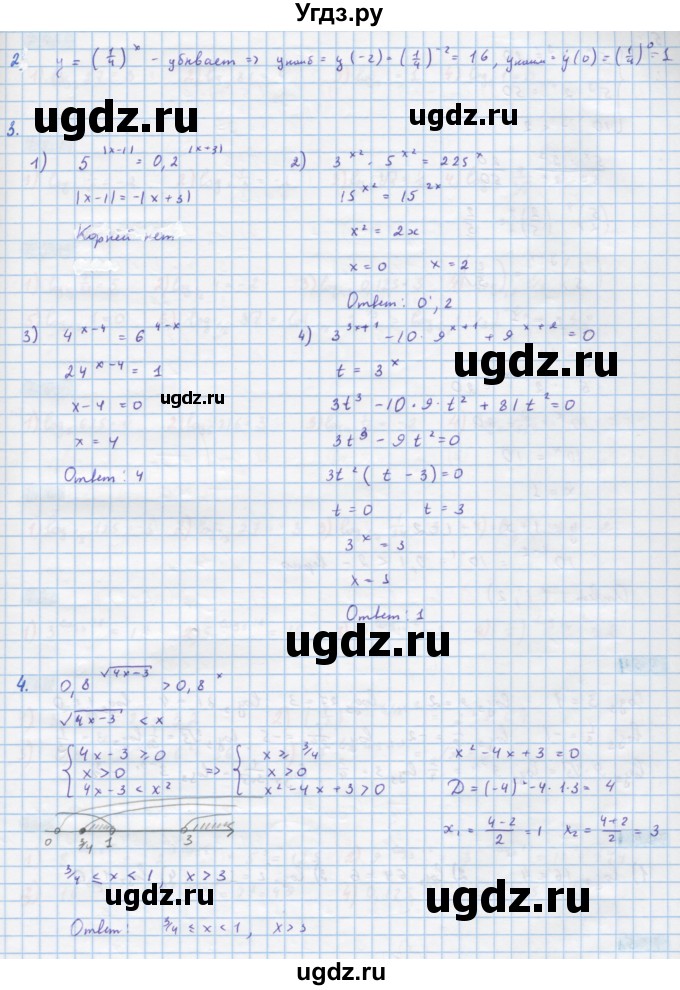 Угдз.ру
2. y = (1/4)^x - убывает => y наиб = y(-2) = (1/4)^-2 = 16, y наим = y(0) = (1/4)^0 = 1
ugdz.ru ugdz.ru
3.
1) 5^|x-1| = 0,2^|x+3|
|x-1| = -|x+3|
Корней нет
2) 3^x² · 5^x² = 225^x
15^x² = 15^2x
x² = 2x
x = 0 x = 2
Ответ: 0, 2
3) 4^x-4 = 6^4-x
24^x-4 = 1
x-4 = 0
x = 4
Ответ: 4
ugdz.ru
4) 3^3x+1 - 10 · 9^x+1 + 9^x+2 = 0
ugdz.ru
t = 3^x
3t³ - 10·9·t² + 81t² = 0
3t³ - 9t² = 0
3t²(t - 3) = 0
t = 0 t = 3
3^x = 3
x = 1
Ответ: 1
ugdz.ru ugdz.ru
4. 0,8^√(4x-3) > 0,8^x
√(4x-3) < x
{ 4x-3 ≥ 0
x > 0
4x-3 < x²
=> { x ≥ 3/4
x > 0
x² - 4x + 3 > 0
x² - 4x + 3 = 0
D = (-4)² - 4·1·3 = 4
x₁ = (4-2)/2 = 1 x₂ = (4+2)/2 = 3
0 3/4 1 3
3/4 ≤ x < 1, x > 3
ugdz.ru ugdz.ru
Ответ: 3/4 ≤ x < 1, x > 3
ugdz.ru